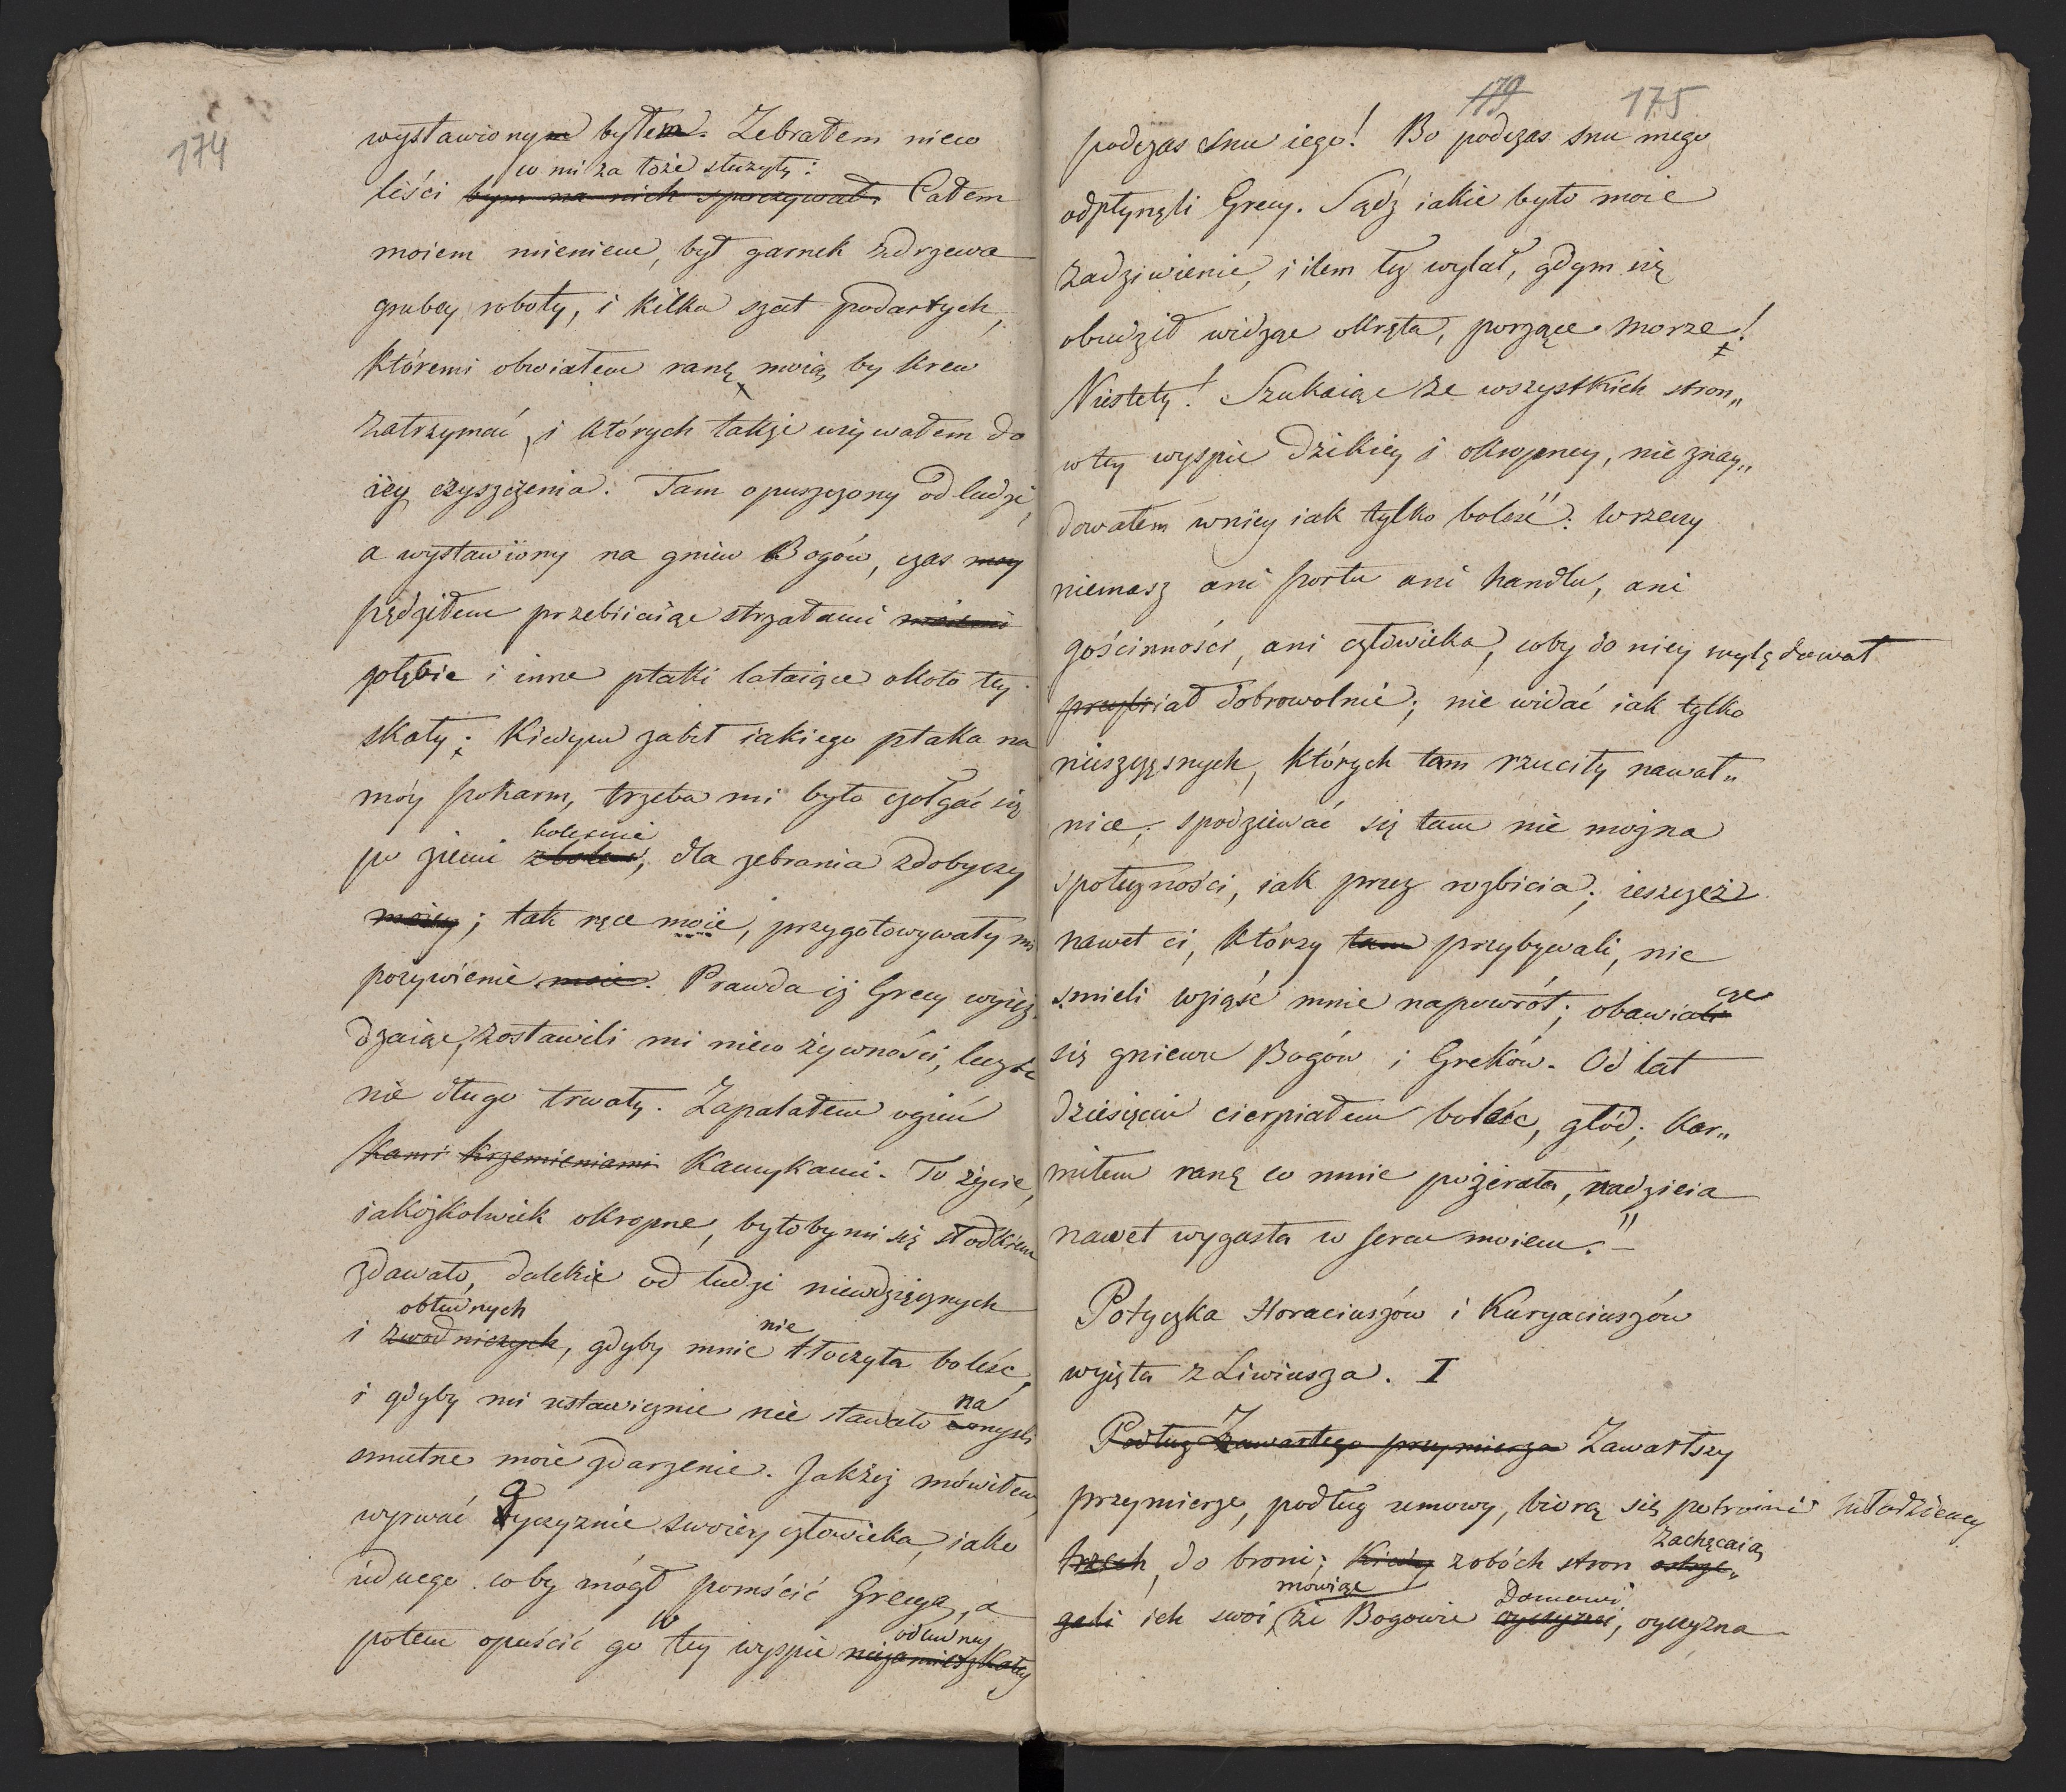 174
wystawionym byłem. Zebrałem nieco
co mi za łoże służyły:
liści bym na nich spoczywał. Całem
moiem mieniem, był garnek zdrzewa
grubey roboty, i kilka szat podartych,
któremi obwiałem ranę moią, by krew
zatrzymać, i których także używałem do
iey czyszczenia. Tam opuszczony od ludzi,
a wystawiony na gniew Bogów, czas moy
pędziłem przebiiaiąc strzałami moiemi
gołębie i inne ptaki lataiące około tey
skały; Kiedym zabił iakiego ptaka na
móy pokarm, trzeba mi było czołgać się
boleśnie
po ziemi z boleś, dla zebrania zdobyczy
moiey; tak ręce moie, przygotowywały mi
pożywienie moie. Prawda iż Grecy wyież
dzaiąc, zostawili mi nieco żywności, lecz te
nie długo trwały. Zapalałem ogień
kami krzemieniami Kamykami. To życie,
iakożkolwiek okropne, byłoby mi się słodkiem
zdawało, dalekie od ludzi niewdzięcznych
obłudnych
i zwodniczych, gdyby mnie nie tłoczyła boleść,
i gdyby mi ustawicznie nie stawało na myśli
smutne moie zdarzenie. Jakżeż mówiłem,
wyrwać Oyczyznie swoiey człowieka, iako
iednego coby mógł pomścić Grecyą, a
potem opuścić go w tey wyspie odludney niezamieszkałey
179 175
podczas snu iego! Bo podczas snu mego
odpłynęli Grecy. Sądź iakie było moie
zadziwienie, i ilem łez wylał, gdym się
obudził widząc okręta, porzące morze!
Niestety! Szukaiąc ze wszystkich stron„
w tey wyspie dzikiey i okropney, nie znay„
dowałem wniey iak tylko boleść: wrzeczy
niemasz ani portu ani handlu, ani
gościnności, ani człowieka, coby do niey wylądował
przybiiał dobrowolnie; nie widać iak tylko
nieszczęsnych, których tam rzuciły nawał„
nice; spodziewać się tam nie można
społeczności, iak przez rozbicia; ieszczeż
nawet ci, którzy tam przybywali, nie
smieli wziąść mnie napowrót; obawiaiąc
się gniewu Bogów i Greków. Od lat
dziesięciu cierpiałem boleść, głód; kar„
miłem ranę co mnie pożerała, nadzieia
nawet wygasła w sercu moiem." –
Potyczka Horaciuszów i Kuryaciuszów
wyięta z Liwiusza. I
Podług Zawartego przymierza Zawartszy
przymierze, podług umowy, biorą się potroini młodzieńcy
zachęcaią
trzech, do broni; Kiedy zobóch stron ostrze„
mówiąc Domowi
gali ich swoi, że Bogowie oyczyzni, oyczyzna